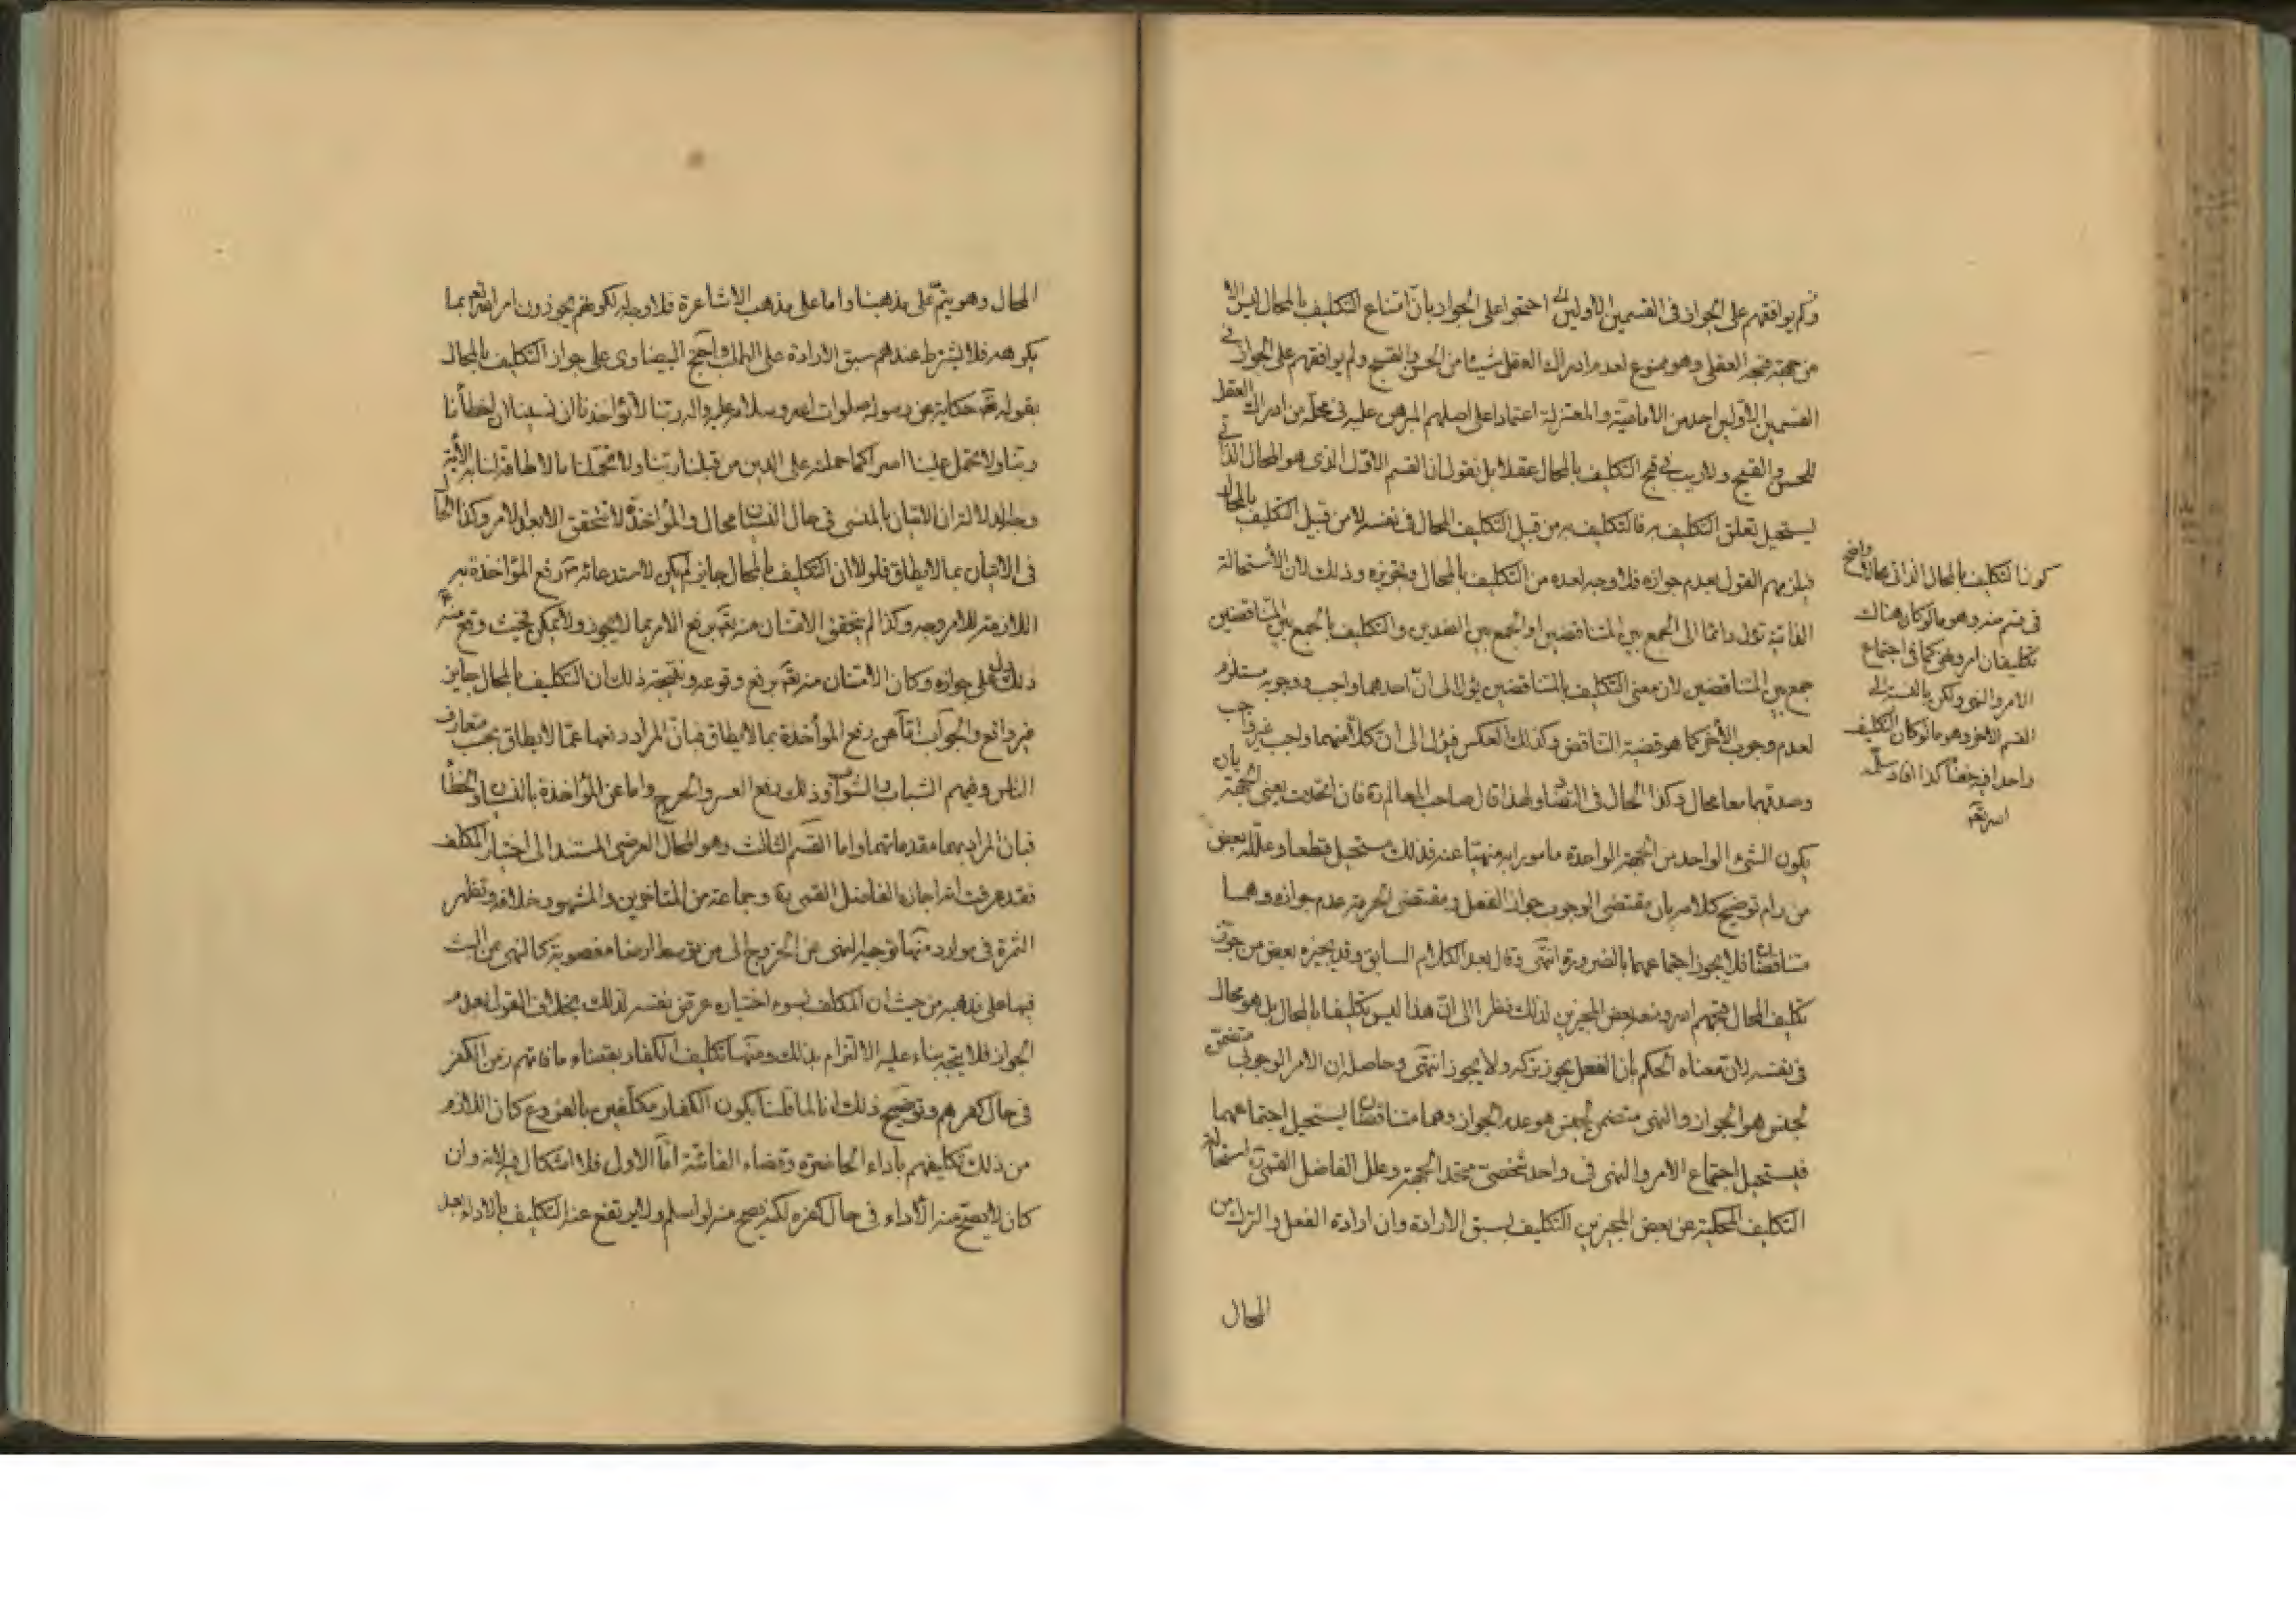 ولم يوافقهم على الجواز في القسمين الأولين احتجوا على الجواز بان امتناع التكليف بالمحال ليس الا
من جهة قبحه العقلي وهو ممنوع لعدم ادراك العقل شيئا من الحسن والقبح ولم يوافقهم على الجواز في
القسمين الأولين احد من الامامية والمعتزلة اعتمادا على اصلهم المبرهن عليه في محله من ادراك العقل
للحسن والقبح ولا ريب في قبح التكليف بالمحال عقلا بل نقول ان القسم الاول الذي هو المحال الذاتي
يستحيل تعلق التكليف به فالتكليف به من قبيل التكليف المحال في نفسه لا من قبيل التكليف بالمحال
فيلزمهم القول بعدم جوازه فلا وجه لعده من التكليف بالمحال وتجويزه وذلك لان الاستحالة
الذاتية تؤل دائما الى الجمع بين المتناقضين او الجمع بين الضدين والتكليف بالجمع بين المتناقضين
جمع بين المتناقضين لان معنى التكليف بالمتناقضين يؤل الى ان احدهما واجب ووجوبه مستلزم
لعدم وجوب الأخر كما هو قضية التناقض وكذلك العكس فيؤل الى ان كلا منهما واجب غير واجب
وصدقهما معا محال وكذا الحال في التضاد ولهذا قال صاحب المعالم ره فان اتحدت يعني الجهة بان
يكون الشيء الواحد من الجهة الواحدة مامورا به منهيا عنه فذلك مستحيل قطعا وعلله بعض
من رام توضيح كلامه بان مقتضى الوجوب جواز الفعل ومقتضى الحرمة عدم جوازه وهما
متناقضان فلا يجوز اجتماعهما بالضرورة انتهى وقال بعد الكلام السابق وقد يجيزه بعض من جوز
تكليف المحال قبحهم الله ومنعه بعض المجيزين لذلك نظرا الى ان هذا ليس تكليفا بالمحال بل هو محال
في نفسه لان معناه الحكم بان الفعل يجوز تركه ولا يجوز انتهى وحاصله ان الامر الوجوبي متضمن
لجنس هو الجواز والنهي متضمن لجنس هو عدم الجواز وهما متناقضان يستحيل اجتماعهما
فيستحيل اجتماع الامر والنهي في واحد شخصي متحد الجهة وعلل الفاضل القمي ره استحالة
التكليف المحكية عن بعض المجيزين التكليف بسبق الارادة وان ارادة الفعل والترك من
المحال
كون التكليف بالمحال الذاتي محالا واضح
في قسم منه وهو ما لو كان هناك
تكليفان امر ونهي كما في اجتماع
الامر والنهي ولكن بالنسبة الى
القسم الاخر وهو ما لو كان التكليف
واحدا فيه خفأ كذا افاد سلمه
الله تعه
المحال وهو يتم على مذهبنا واما على مذهب الاشاعرة فلا وجه له لكونهم يجوزون امر الله تعه بما
يكرهه فلا يشترط عندهم سبق الارادة على الطلب واحتج البيضاوي على جواز التكليف بالمحال
بقوله تعه حكاية عن رسوله صلوات الله وسلامه عليه واله ربنا لا تؤاخذنا ان نسينا او اخطأنا
ربنا ولا تحمل علينا اصرا كما حملته على الذين من قبلنا ربنا ولا تحملنا ما لا طاقة لنا به الأية
وجه الدلالة ان الاتيان بالمنسي في حال النسيان محال والمؤاخذة لا تتحقق الا بعد الامر وكذا الحال
في الاتيان بما لا يطاق فلولا ان التكليف بالمحال جايز لم يكن لاستدعائه رفع المؤاخذة به
اللازمة للامر وجه وكذا لم يتحقق الامتنان منه تعه برفع الامر بما لا يجوز ولا يمكن فحيث وقع منه تعه
ذلك دل على جوازه وكان الامتنان منه تعه برفع وقوعه ونتيجة ذلك ان التكليف بالمحال جايز
غير واقع والجواب اما عن رفع المؤاخذة بما لا يطاق فبان المراد رفعها عما لا يطاق بحسب متعارف
الناس وفيهم الشباب والشيوخ وذلك رفع العسر والحرج واما عن المؤاخذة بالنسيان والخطأ
فبان المراد بهما مقدماتهما واما القسم الثالث وهو المحال العرضي المستند الى اختيار المكلف
فقد عرفت انه اجازه الفاضل القمي ره وجماعة من المتاخرين والمشهور خلافه وتظهر
الثمرة في موارد منها توجيه النهي عن الخروج الى من توسط ارضا مغصوبة كالنهي عن اللبث
فيها على مذهبه من حيث ان المكلف بسوء اختياره عرض نفسه لذلك بخلاف القول بعدم
الجواز فلا يتجه بناء عليه الالتزام بذلك ومنها تكليف الكفار بقضاء ما فاتهم زمن الكفر
في حال كفرهم وتوضيح ذلك انا لما قلنا بكون الكفار مكلفين بالفروع كان اللازم
من ذلك تكليفهم باداء الحاضرة وقضاء الفائتة اما الاول فلا اشكال فيه لانه وان
كان لا يصح منه الأداء في حال كفره لكنه يصح منه لو اسلم ولا يرتفع عنه التكليف بالاداء بعد